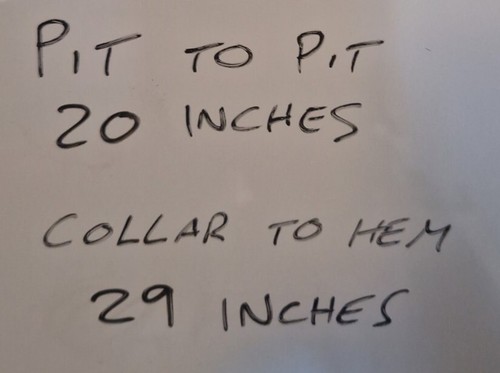 PIT TO PIT
20 INCHES
COLLAR TO HEM
29 INCHES